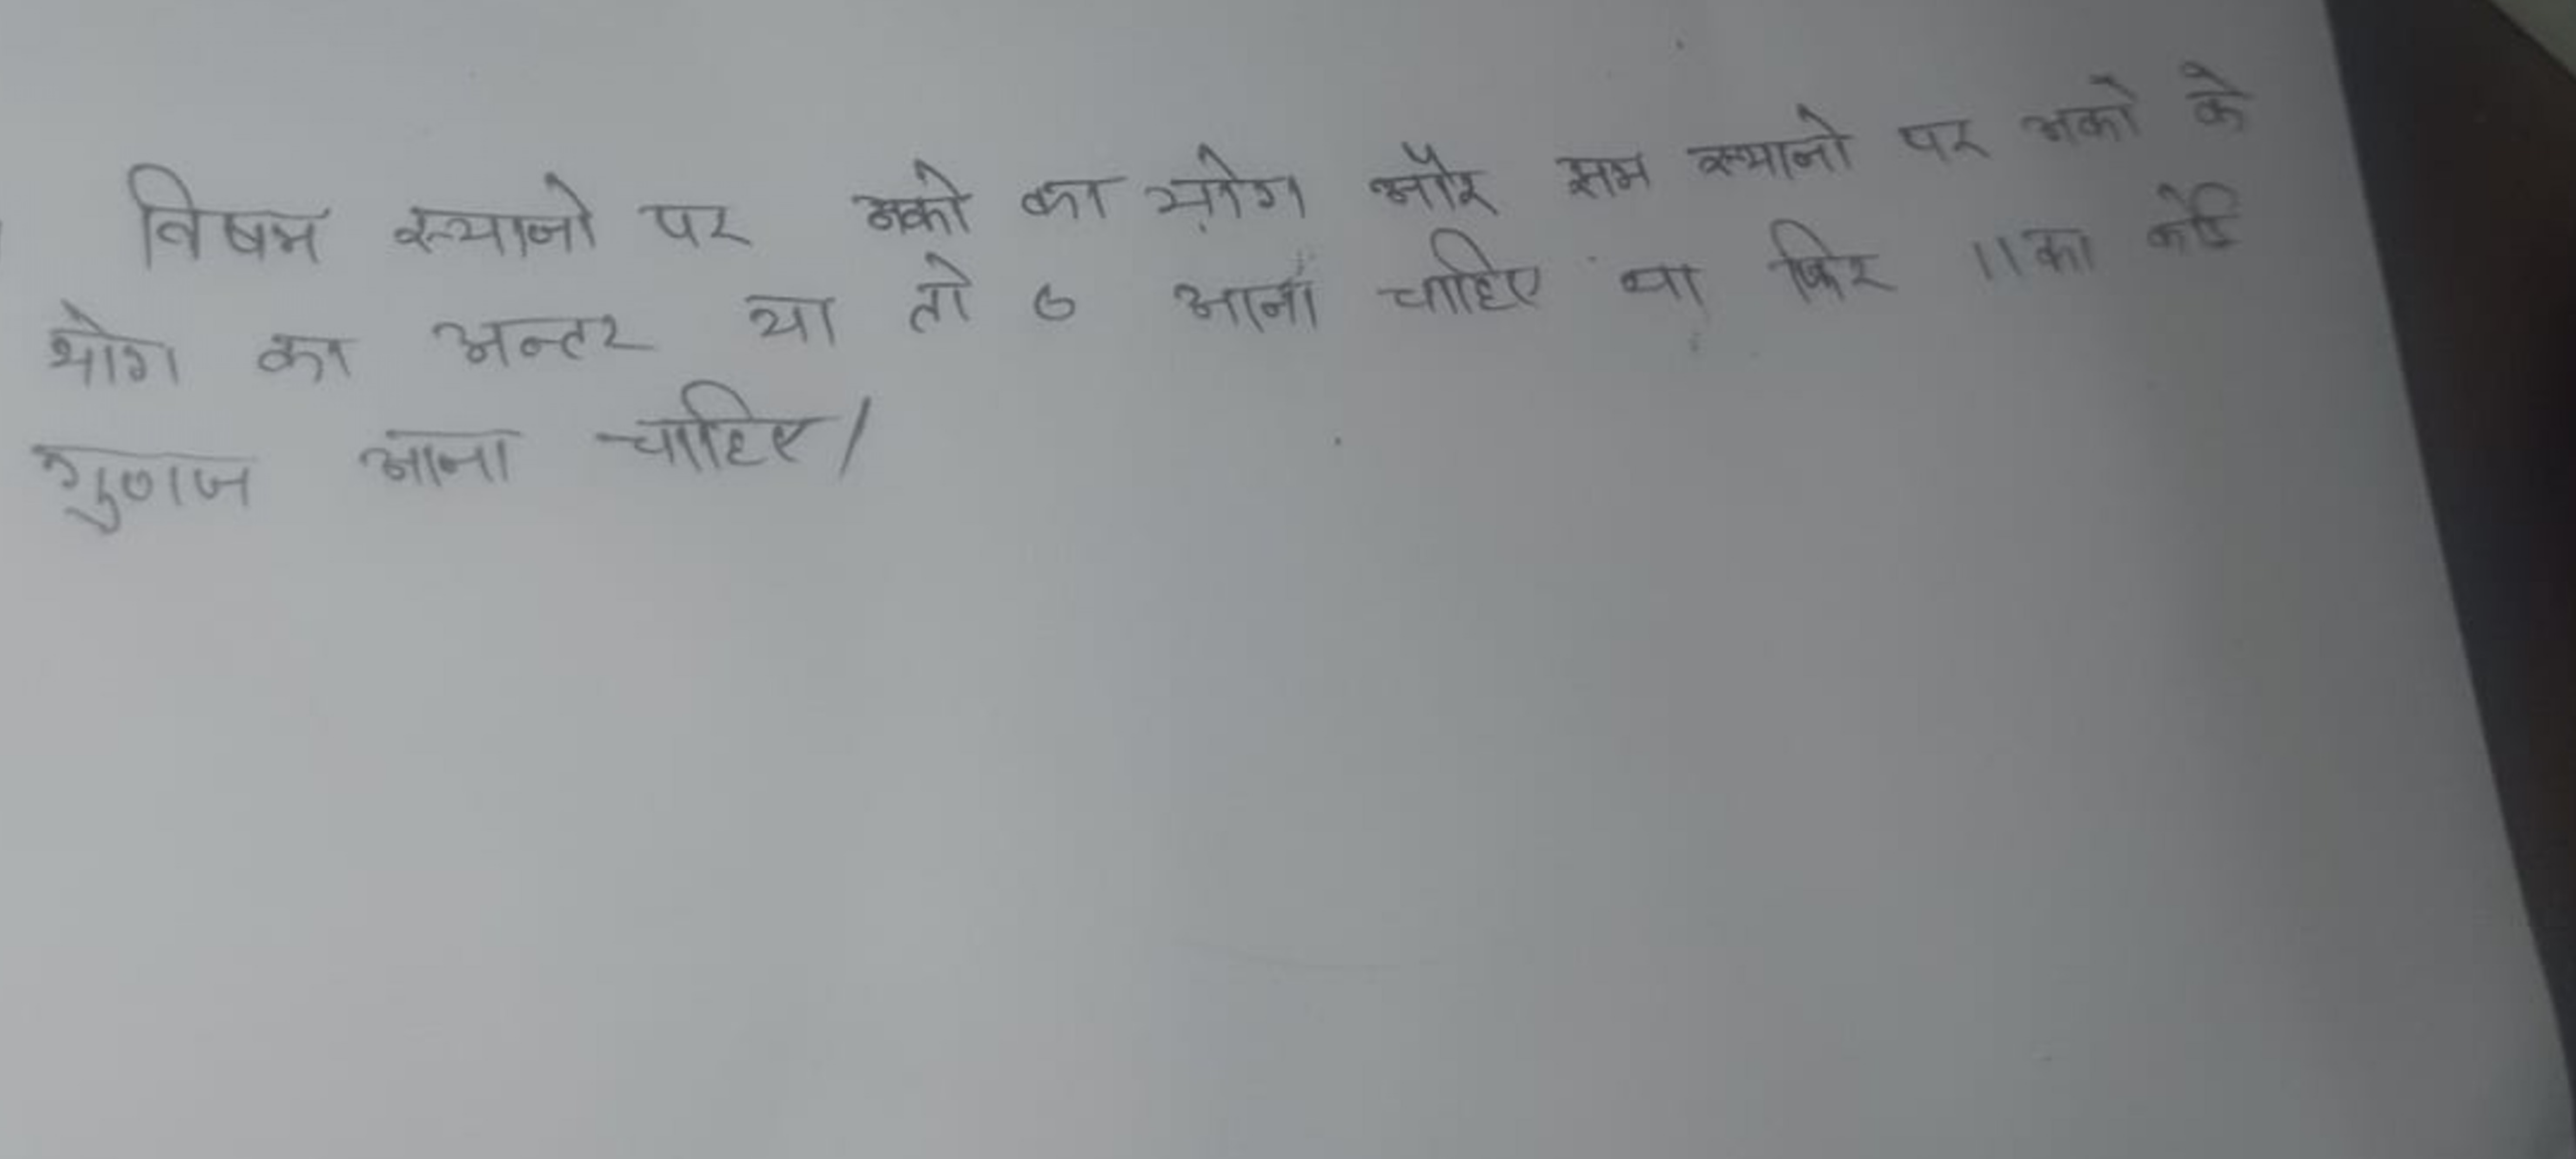 विषम स्थानो पर अको का योग और सम स्थानो पर अको के
योग का अन्तर या तो 0 आना चाहिए या फिर 11 का कोई
गुणज आना चाहिए/